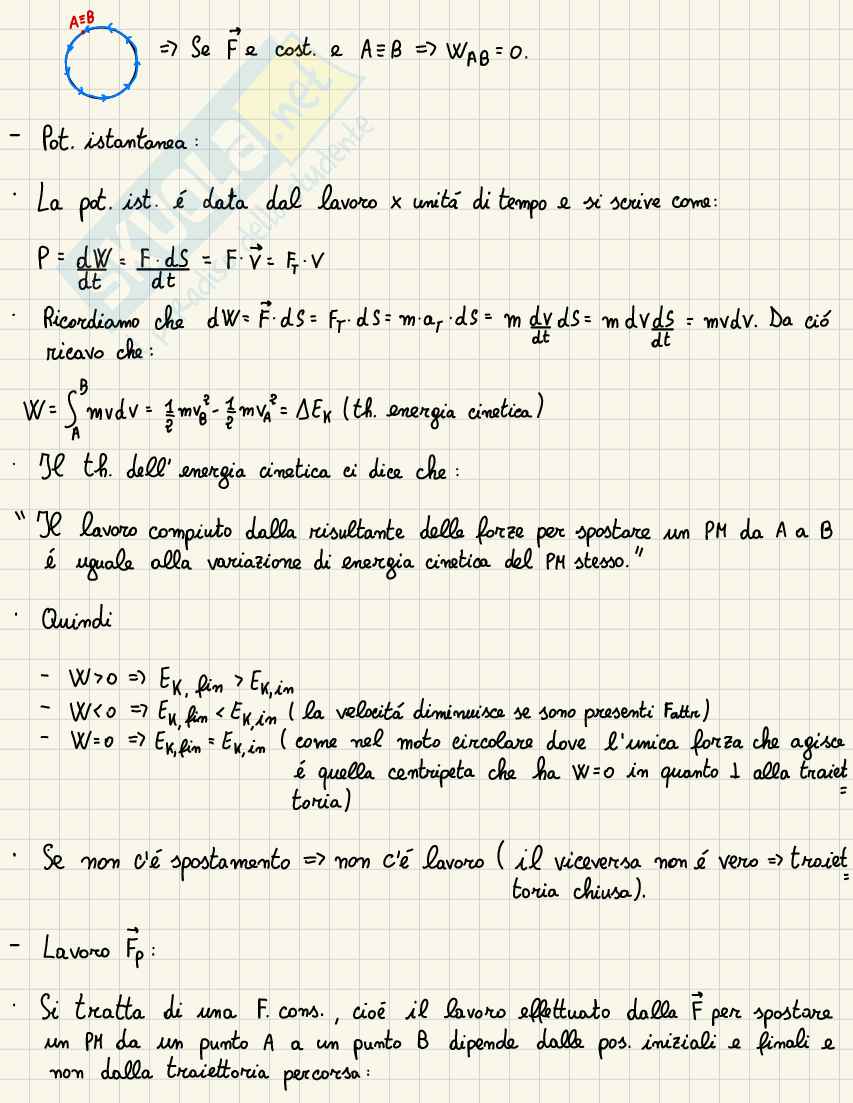 A≡B
=> Se F⃗ e cost. e A≡B => W_AB = 0.
- Pot. istantanea:
· La pot. ist. é data dal lavoro x unitá di tempo e si scrive come:
P = dW/dt = F·dS/dt = F·v⃗ = F_T·V
· Ricordiamo che dW = F⃗·dS = F_T·dS = m·a_T·dS = m dv/dt dS = m dv dS/dt = mvdv. Da ció
ricavo che:
W = ∫_A^B mvdv = 1/2 mv_B² - 1/2 mv_A² = ΔE_K (th. energia cinetica)
· Il th. dell'energia cinetica ci dice che:
"Il lavoro compiuto dalla risultante delle forze per spostare un PM da A a B
é uguale alla variazione di energia cinetica del PM stesso."
· Quindi
- W>0 => E_K,fin > E_K,in
- W<0 => E_K,fin < E_K,in (la velocitá diminuisce se sono presenti Fattr)
- W=0 => E_K,fin = E_K,in (come nel moto circolare dove l'unica forza che agisce
é quella centripeta che ha W=0 in quanto ⊥ alla traiet=
toria)
· Se non c'é spostamento => non c'é lavoro (il viceversa non é vero => traiet=
toria chiusa).
- Lavoro F⃗_p:
· Si tratta di una F. cons., cioé il lavoro effettuato dalla F⃗ per spostare
un PM da un punto A a un punto B dipende dalle pos. iniziali e finali e
non dalla traiettoria percorsa:
SKUOLA.net